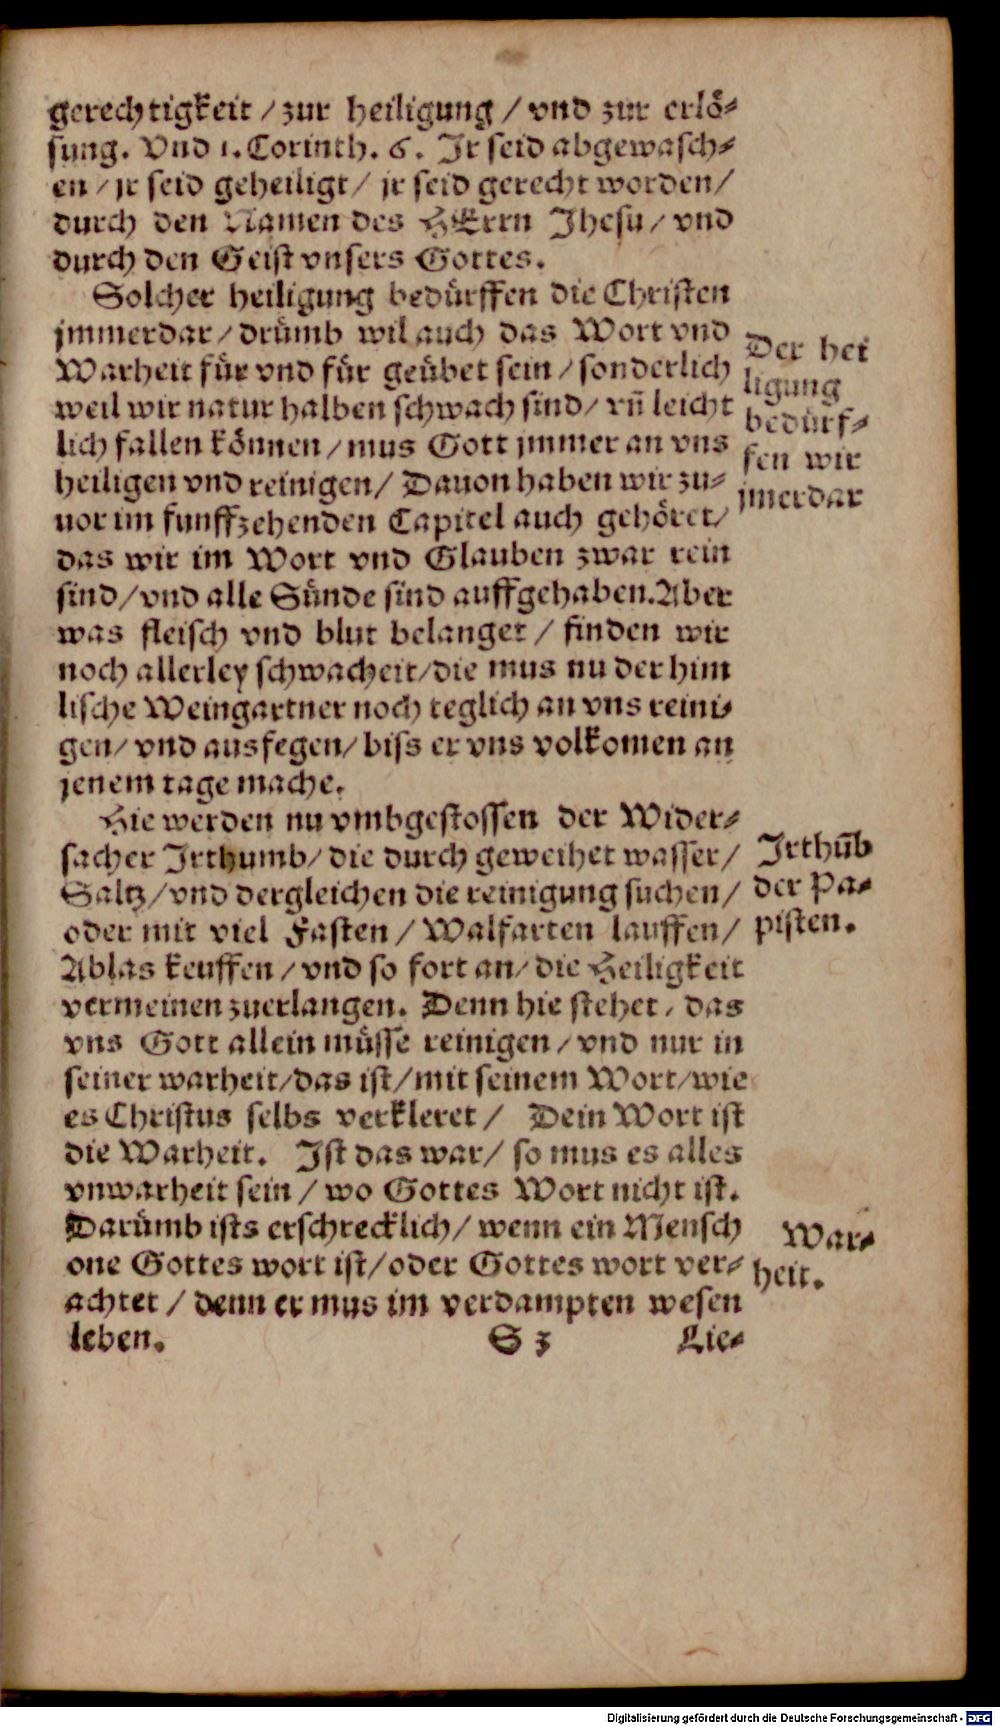 gerechtigkeit / zur heiligung / vnd zur erlö-
sung. Vnd 1. Corinth. 6. Jr seid abgewasch-
en / jr seid geheiligt / jr seid gerecht worden /
durch den Namen des HErrn Jhesu / vnd
durch den Geist vnsers Gottes.
Solcher heiligung bedürffen die Christen
jmmerdar / drümb wil auch das Wort vnd
Warheit für vnd für geübet sein / sonderlich
weil wir natur halben schwach sind / vñ leicht
lich fallen können / mus Gott jmmer an vns
heiligen vnd reinigen / Dauon haben wir zu-
uor im funffzehenden Capitel auch gehöret /
das wir im Wort vnd Glauben zwar rein
sind / vnd alle Sünde sind auffgehaben. Aber
was fleisch vnd blut belanget / finden wir
noch allerley schwacheit / die mus nu der him
lische Weingartner noch teglich an vns reini-
gen / vnd ausfegen / biss er vns volkomen an
jenem tage mache.
Der hei
ligung
bedürf-
fen wir
jmerdar
Hie werden nu vmbgestossen der Wider-
sacher Irthumb / die durch geweihet wasser /
Saltz / vnd dergleichen die reinigung suchen /
oder mit viel Fasten / Walfarten lauffen /
Ablas keuffen / vnd so fort an / die Heiligkeit
vermeinen zuerlangen. Denn hie stehet / das
vns Gott allein müsse reinigen / vnd nur in
seiner warheit / das ist / mit seinem Wort / wie
es Christus selbs verkleret / Dein Wort ist
die Warheit. Ist das war / so mus es alles
vnwarheit sein / wo Gottes Wort nicht ist.
Darümb ists erschrecklich / wenn ein Mensch
one Gottes wort ist / oder Gottes wort ver-
achtet / denn er mus im verdampten wesen
leben.
Irthūb
der Pa-
pisten.
War-
heit.
S 3 Lie-
Digitalisierung gefördert durch die Deutsche Forschungsgemeinschaft - DFG